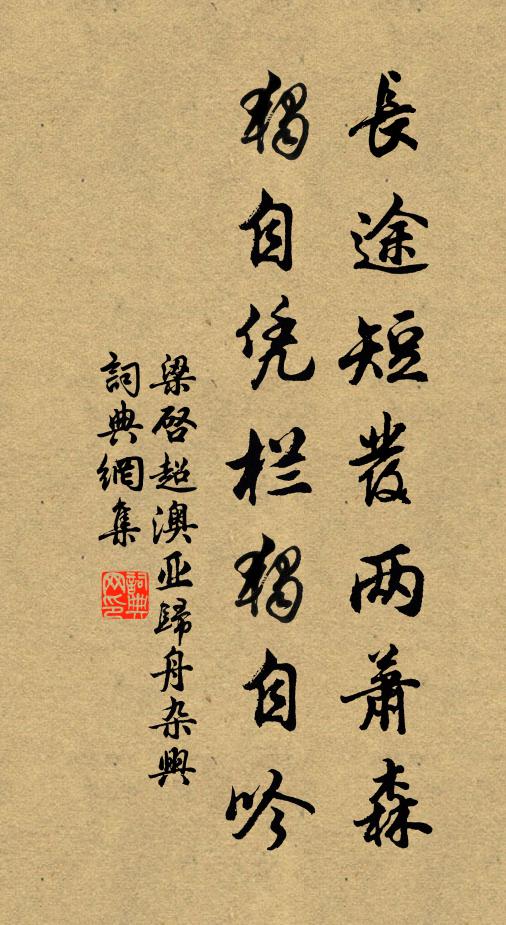 長途短發两蕭森
獨自凭栏獨自吟
梁啓超澳亚歸舟杂興
詞典網集
詞典網印